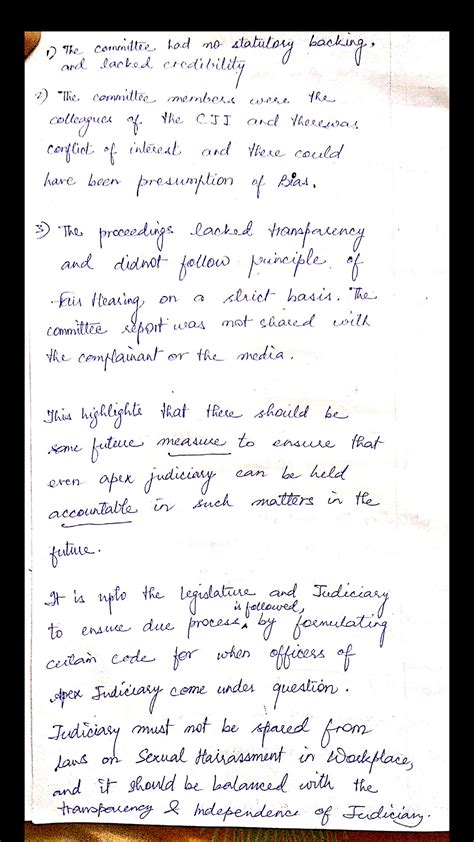 1) The committee had no statutory backing,
and lacked credibility
2) The committee members were the
colleagues of the CJI and therewas
conflict of interest and there could
have been presumption of Bias.
3) The proceedings lacked transparency
and didnot follow principle of
Fair Hearing, on a strict basis. The
committee report was not shared with
the complainant or the media.
This highlights that there should be
some future measure to ensure that
even apex judiciary can be held
accountable in such matters in the
future.
It is upto the legislature and Judiciary
to ensure due process is followed, by formulating
certain code for when officers of
Apex Judiciary come under question.
Judiciary must not be spared from
Laws on Sexual Hairassment in Workplace,
and it should be balanced with the
transparency & Independence of Judiciary.